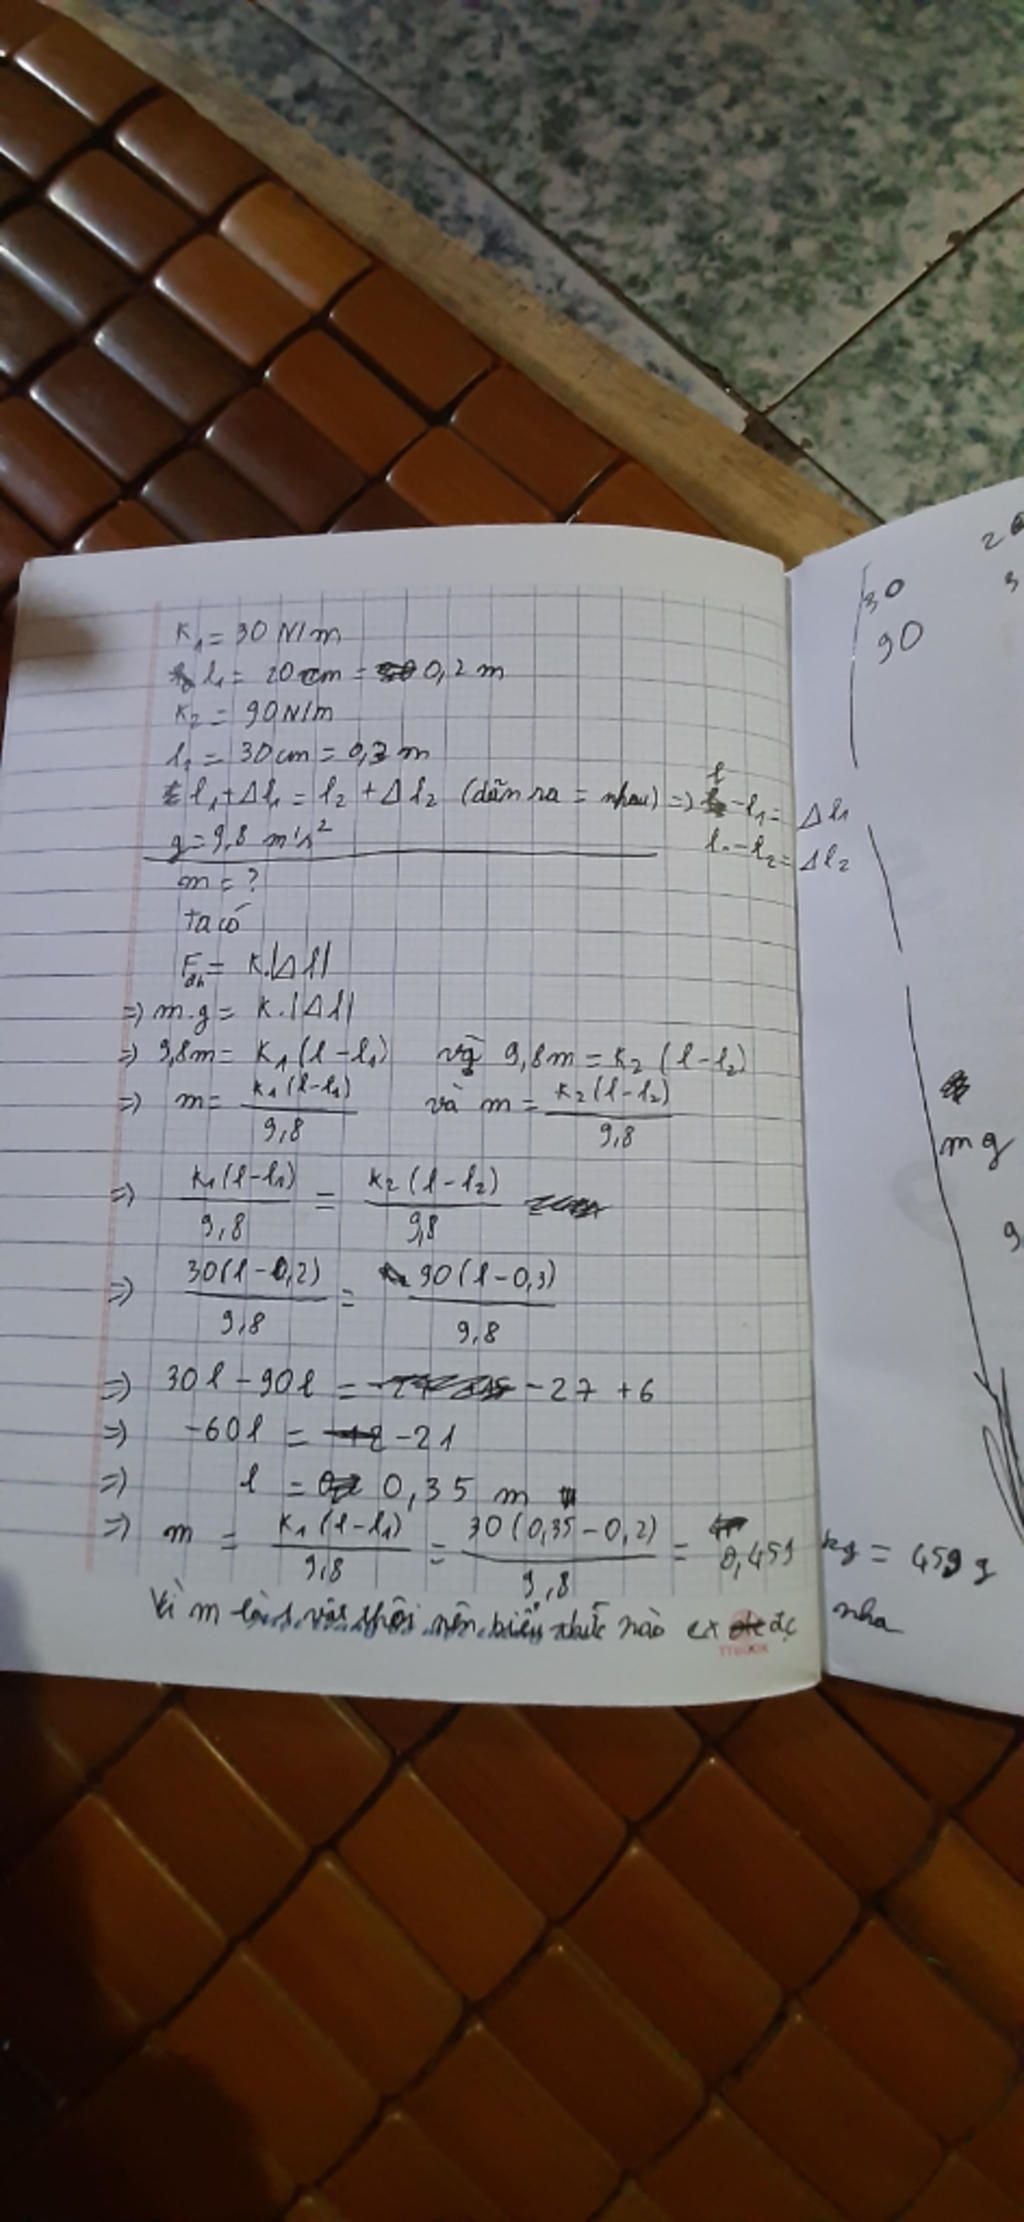 K₁ = 30 N/m
l₁ = 20 cm = 0,2 m
K₂ = 90 N/m
l₂ = 30 cm = 0,3 m
l₁ + Δl₁ = l₂ + Δl₂ (dãn ra = nhau) => l - l₁ = Δl₁
l - l₂ = Δl₂
g = 9,8 m/s²
m = ?
ta có
Fđh = K.|Δl|
=> m.g = K.|Δl|
=> 9,8m = K₁(l - l₁) và 9,8m = K₂(l - l₂)
=> m = K₁(l - l₁) / 9,8 và m = K₂(l - l₂) / 9,8
=> K₁(l - l₁) / 9,8 = K₂(l - l₂) / 9,8
=> 30(l - 0,2) / 9,8 = 90(l - 0,3) / 9,8
=> 30l - 90l = -27 + 6
=> -60l = -21
=> l = 0,35 m
=> m = K₁(l - l₁) / 9,8 = 30(0,35 - 0,2) / 9,8 = 0,459 kg = 459 g
Vì m là 1 vật thôi nên biểu thức nào cx đc nha
30
90
mg